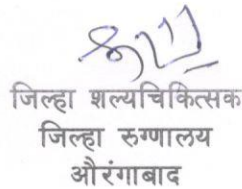 जिल्हा शल्यचिकित्सक
जिल्हा रुग्णालय
औरंगाबाद